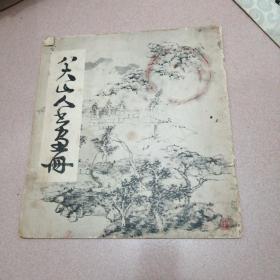 八大山人书画册